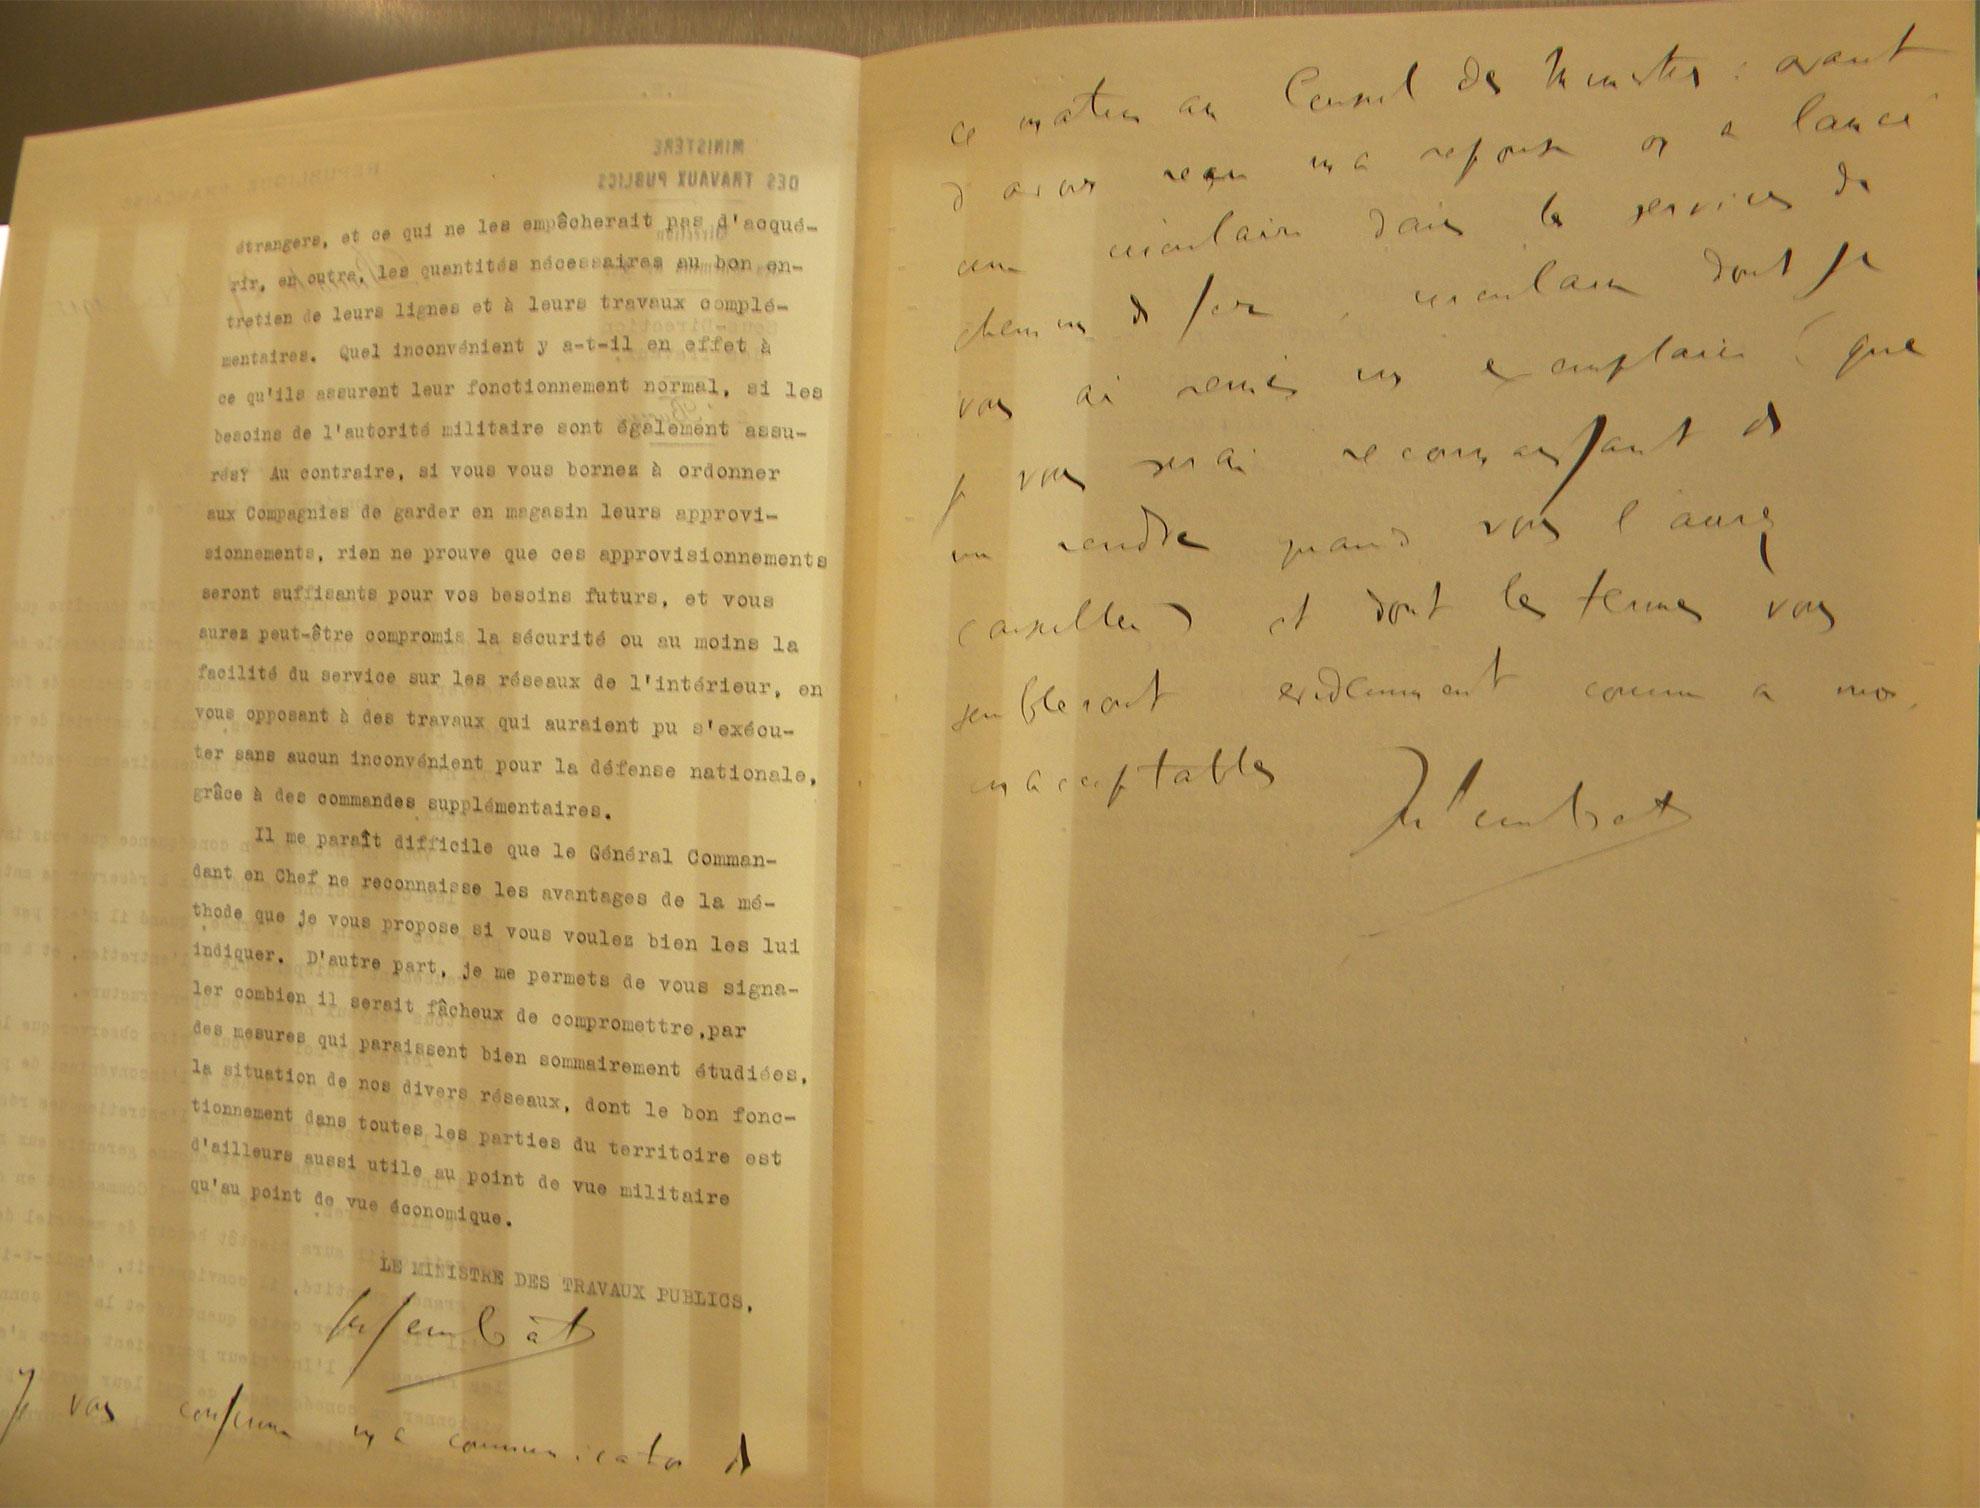 étrangers, et ce qui ne les empêcherait pas d'acqué-
rir, en outre, les quantités nécessaires au bon en-
tretien de leurs lignes et à leurs travaux complé-
mentaires. Quel inconvénient y a-t-il en effet à
ce qu'ils assurent leur fonctionnement normal, si les
besoins de l'autorité militaire sont également assu-
rés? Au contraire, si vous vous bornez à ordonner
aux Compagnies de garder en magasin leurs approvi-
sionnements, rien ne prouve que ces approvisionnements
seront suffisants pour vos besoins futurs, et vous
aurez peut-être compromis la sécurité ou au moins la
facilité du service sur les réseaux de l'intérieur, en
vous opposant à des travaux qui auraient pu s'exécu-
ter sans aucun inconvénient pour la défense nationale,
grâce à des commandes supplémentaires.
Il me paraît difficile que le Général Comman-
dant en Chef ne reconnaisse les avantages de la mé-
thode que je vous propose si vous voulez bien les lui
indiquer. D'autre part, je me permets de vous signa-
ler combien il serait fâcheux de compromettre, par
des mesures qui paraissent bien sommairement étudiées,
la situation de nos divers réseaux, dont le bon fonc-
tionnement dans toutes les parties du territoire est
d'ailleurs aussi utile au point de vue militaire
qu'au point de vue économique.
LE MINISTRE DES TRAVAUX PUBLICS,
Sembat
Je vous confirme ma communication de
ce matin au Conseil des Ministres : avant
d'avoir reçu ma réponse on a lancé
une circulaire dans les services de
chemin de fer, circulaire dont je
vous ai remis un exemplaire (que
je vous serai reconnaissant de
me rendre quand vous l'aurez
) et dont les termes vous
sembleront évidemment comme à moi
inacceptables
Sembat
MINISTÈRE
DES TRAVAUX PUBLICS
RÉPUBLIQUE FRANÇAISE